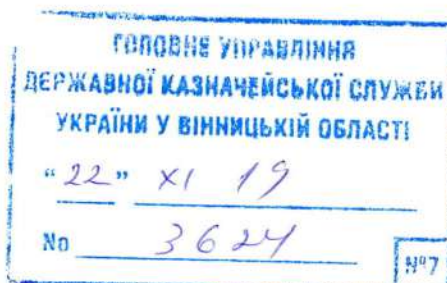 ГОЛОВНЕ УПРАВЛІННЯ
ДЕРЖАВНОЇ КАЗНАЧЕЙСЬКОЇ СЛУЖБИ
УКРАЇНИ У ВІННИЦЬКІЙ ОБЛАСТІ
"22" XI 19
No 3624
№7